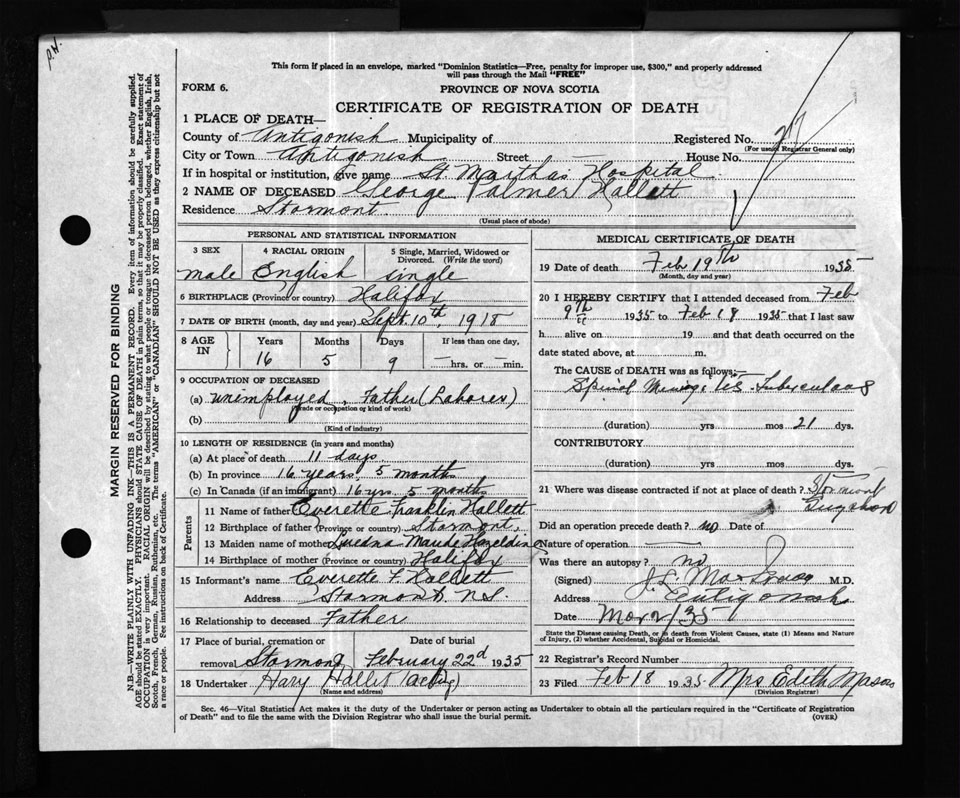 P.H.
This form if placed in an envelope, marked "Dominion Statistics—Free, penalty for improper use, $300," and properly addressed
will pass through the Mail "FREE"
FORM 6.
PROVINCE OF NOVA SCOTIA
CERTIFICATE OF REGISTRATION OF DEATH
1 PLACE OF DEATH—
County of Antigonish Municipality of Registered No.
(For use of Registrar General only)
City or Town Antigonish Street House No.
If in hospital or institution, give name St. Marthas Hospital
2 NAME OF DECEASED George Palmer Hallett
Residence Stormont.
(Usual place of abode)
PERSONAL AND STATISTICAL INFORMATION
3 SEX 4 RACIAL ORIGIN 5 Single, Married, Widowed or
Divorced. (Write the word)
male English single
6 BIRTHPLACE (Province or country) Halifax
7 DATE OF BIRTH (month, day and year) Sept. 10th, 1918
8 AGE IN Years Months Days If less than one day,
16 5 9 —hrs. or —min.
9 OCCUPATION OF DECEASED
(a) unemployed, Father (Laborer)
(Trade or occupation or kind of work)
(b)
(Kind of industry)
10 LENGTH OF RESIDENCE (in years and months)
(a) At place of death 11 days
(b) In province 16 years. 5 months
(c) In Canada (if an immigrant) 16 yrs. 5 months
Parents
11 Name of father Everette Franklin Hallett
12 Birthplace of father (Province or country) Stormont,
13 Maiden name of mother Maude
14 Birthplace of mother (Province or country) Halifax
15 Informant's name Everette F Hallett
Address Stormont. N.S.
16 Relationship to deceased Father
17 Place of burial, cremation or Date of burial
removal Stormont February 22d 1935
18 Undertaker Hary Hallet (acting)
(Name and address)
MEDICAL CERTIFICATE OF DEATH
19 Date of death Feb 19th 1935
(Month, day and year)
20 I HEREBY CERTIFY that I attended deceased from Feb
9th 1935 to Feb 19 1935 that I last saw
h alive on 19 and that death occurred on the
date stated above, at m.
The CAUSE of DEATH was as follows:
Spinal Meningitis Tuberculous
(duration) yrs mos 21 dys.
CONTRIBUTORY
(duration) yrs mos dys.
21 Where was disease contracted if not at place of death? Stormont
Guysboro
Did an operation precede death? no Date of
Nature of operation
Was there an autopsy? no
(Signed) M.D.
Address Antigonish
Date Mar 2/35
State the Disease causing Death, or in death from Violent Causes, state (1) Means and Nature
of Injury, (2) whether Accidental, Suicidal or Homicidal.
22 Registrar's Record Number
23 Filed Feb 18 1935 Mrs Edith
(Division Registrar)
Sec. 46—Vital Statistics Act makes it the duty of the Undertaker or person acting as Undertaker to obtain all the particulars required in the "Certificate of Registration
of Death" and to file the same with the Division Registrar who shall issue the burial permit. (OVER)
MARGIN RESERVED FOR BINDING
N.B.—WRITE PLAINLY WITH UNFADING INK—THIS IS A PERMANENT RECORD. Every item of information should be carefully supplied.
AGE should be stated EXACTLY. PHYSICIANS should STATE CAUSE OF DEATH in plain terms, so that it may be properly classified. Exact statement of
OCCUPATION is very important. RACIAL ORIGIN will be described by stating to what people or tongue the deceased person belonged, whether English, Irish,
Scotch, French, German, Russian, Ruthenian, etc. The terms "AMERICAN" or "CANADIAN" SHOULD NOT BE USED as they express citizenship but not
a race or people. See instructions on back of Certificate.